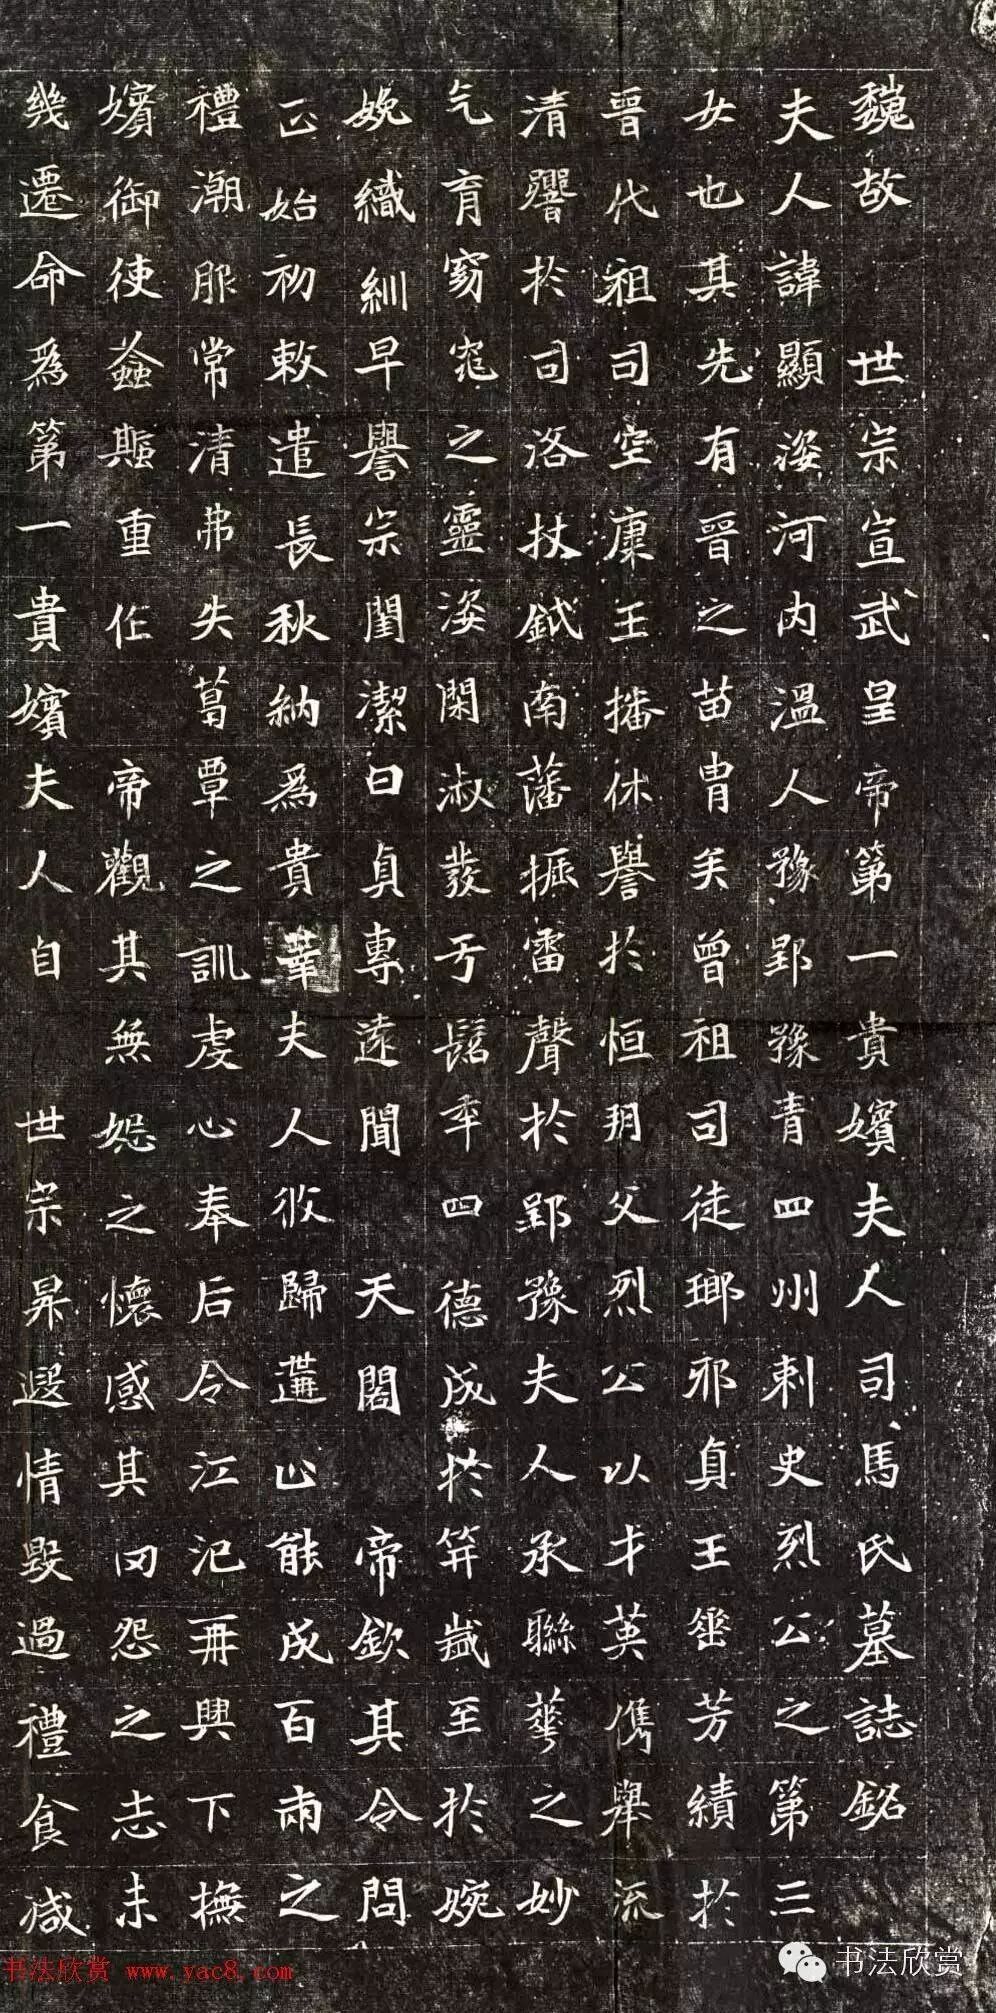 魏故 世宗宣武皇帝第一貴嬪夫人司馬氏墓誌銘
夫人諱顯姿河内溫人豫郢豫青四州刺史烈公之第三
女也其先有晉之苗胄矣曾祖司徒瑯邪貞王垂芳績於
晉代祖司空康王播休譽於恒朔父烈公以才英儁舉流
清響於司洛杖鉞南藩振雷聲於郢豫夫人承聯華之妙
气育窈窕之靈姿閑淑發于髫年四德成於笄歲至於婉
娩織紃早譽宗閨潔白貞專遠聞 天閣 帝欽其令問
正始初敕遣長秋納為貴華夫人攸歸遘止能成百兩之
禮潮服常清弗失葛覃之訓虔心奉后令江汜再興下撫
嬪御使螽斯重作 帝觀其無妬之懷感其罔怨之志未
幾遷命為第一貴嬪夫人自 世宗昇遐情毀過禮食減
书法欣赏 www.yac8.com
书法欣赏